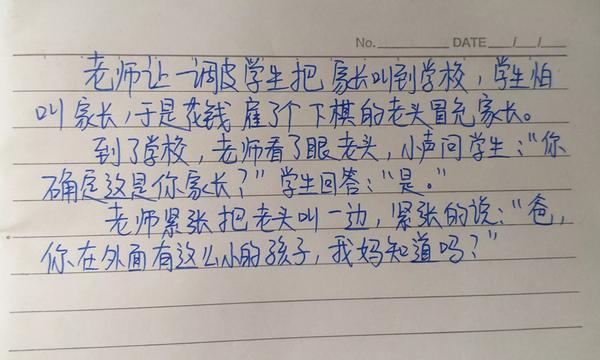 No. DATE / /
老师让一调皮学生把家长叫到学校，学生怕
叫家长，于是花钱雇了个下棋的老头冒充家长。
到了学校，老师看了眼老头，小声问学生："你
确定这是你家长？"学生回答："是。"
老师紧张把老头叫一边，紧张的说："爸，
你在外面有这么小的孩子，我妈知道吗？"